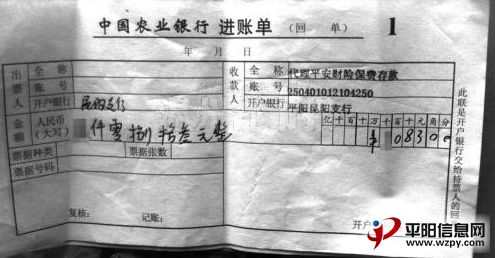 中国农业银行 进账单（回 单） 1
年 月 日
出票人 全称
账号
开户银行
收款人 全称 代理平安财险保费存款
账号 250401012104250
开户银行 平阳昆阳支行
金额 人民币（大写） 仟零捌拾叁元整
亿千百十万千百十元角分
08300
票据种类 票据张数
票据号码
复核： 记账：
开户
此联是开户银行交给持票人的回
平阳信息网
www.wzpy.com